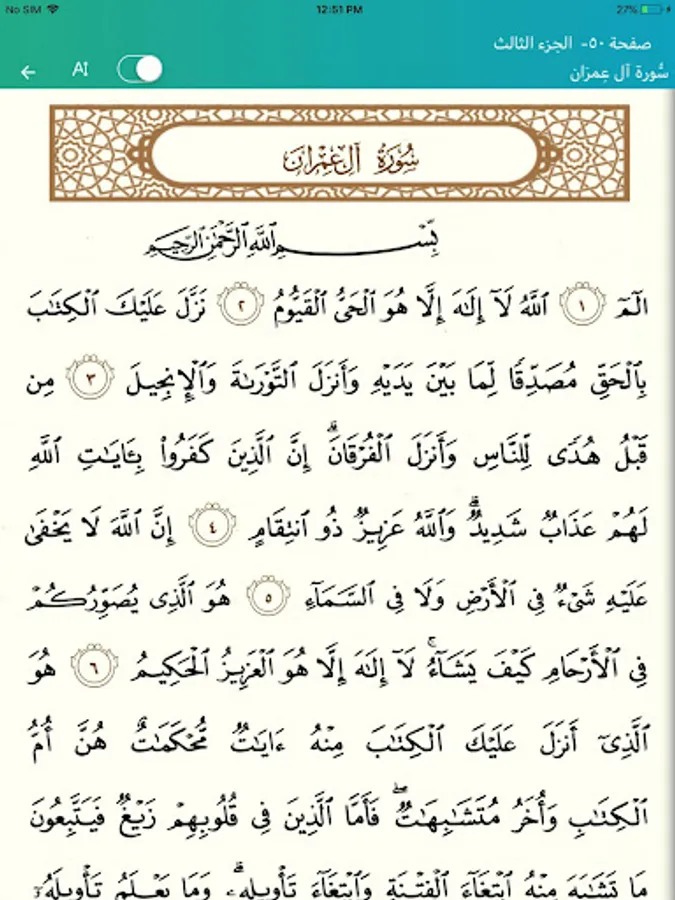 No SIM 12:51 PM 27%
صفحة ٥٠- الجزء الثالث
AI سُورة آل عِمرَان
سُورَةُ آلِ عِمْرَانَ
بِّسْمِ ٱللَّهِ ٱلرَّحْمَٰنِ ٱلرَّحِيمِ
الٓمٓ ١ ٱللَّهُ لَآ إِلَٰهَ إِلَّا هُوَ ٱلْحَىُّ ٱلْقَيُّومُ ٢ نَزَّلَ عَلَيْكَ ٱلْكِتَٰبَ
بِٱلْحَقِّ مُصَدِّقًا لِّمَا بَيْنَ يَدَيْهِ وَأَنزَلَ ٱلتَّوْرَىٰةَ وَٱلْإِنجِيلَ ٣ مِن
قَبْلُ هُدًى لِّلنَّاسِ وَأَنزَلَ ٱلْفُرْقَانَ ۗ إِنَّ ٱلَّذِينَ كَفَرُوا۟ بِـَٔايَٰتِ ٱللَّهِ
لَهُمْ عَذَابٌ شَدِيدٌ ۗ وَٱللَّهُ عَزِيزٌ ذُو ٱنتِقَامٍ ٤ إِنَّ ٱللَّهَ لَا يَخْفَىٰ
عَلَيْهِ شَىْءٌ فِى ٱلْأَرْضِ وَلَا فِى ٱلسَّمَآءِ ٥ هُوَ ٱلَّذِى يُصَوِّرُكُمْ
فِى ٱلْأَرْحَامِ كَيْفَ يَشَآءُ ۚ لَآ إِلَٰهَ إِلَّا هُوَ ٱلْعَزِيزُ ٱلْحَكِيمُ ٦ هُوَ
ٱلَّذِىٓ أَنزَلَ عَلَيْكَ ٱلْكِتَٰبَ مِنْهُ ءَايَٰتٌ مُّحْكَمَٰتٌ هُنَّ أُمُّ
ٱلْكِتَٰبِ وَأُخَرُ مُتَشَٰبِهَٰتٌ ۖ فَأَمَّا ٱلَّذِينَ فِى قُلُوبِهِمْ زَيْغٌ فَيَتَّبِعُونَ
مَا تَشَٰبَهَ مِنْهُ ٱبْتِغَآءَ ٱلْفِتْنَةِ وَٱبْتِغَآءَ تَأْوِيلِهِۦ ۗ وَمَا يَعْلَمُ تَأْوِيلَهُۥٓ